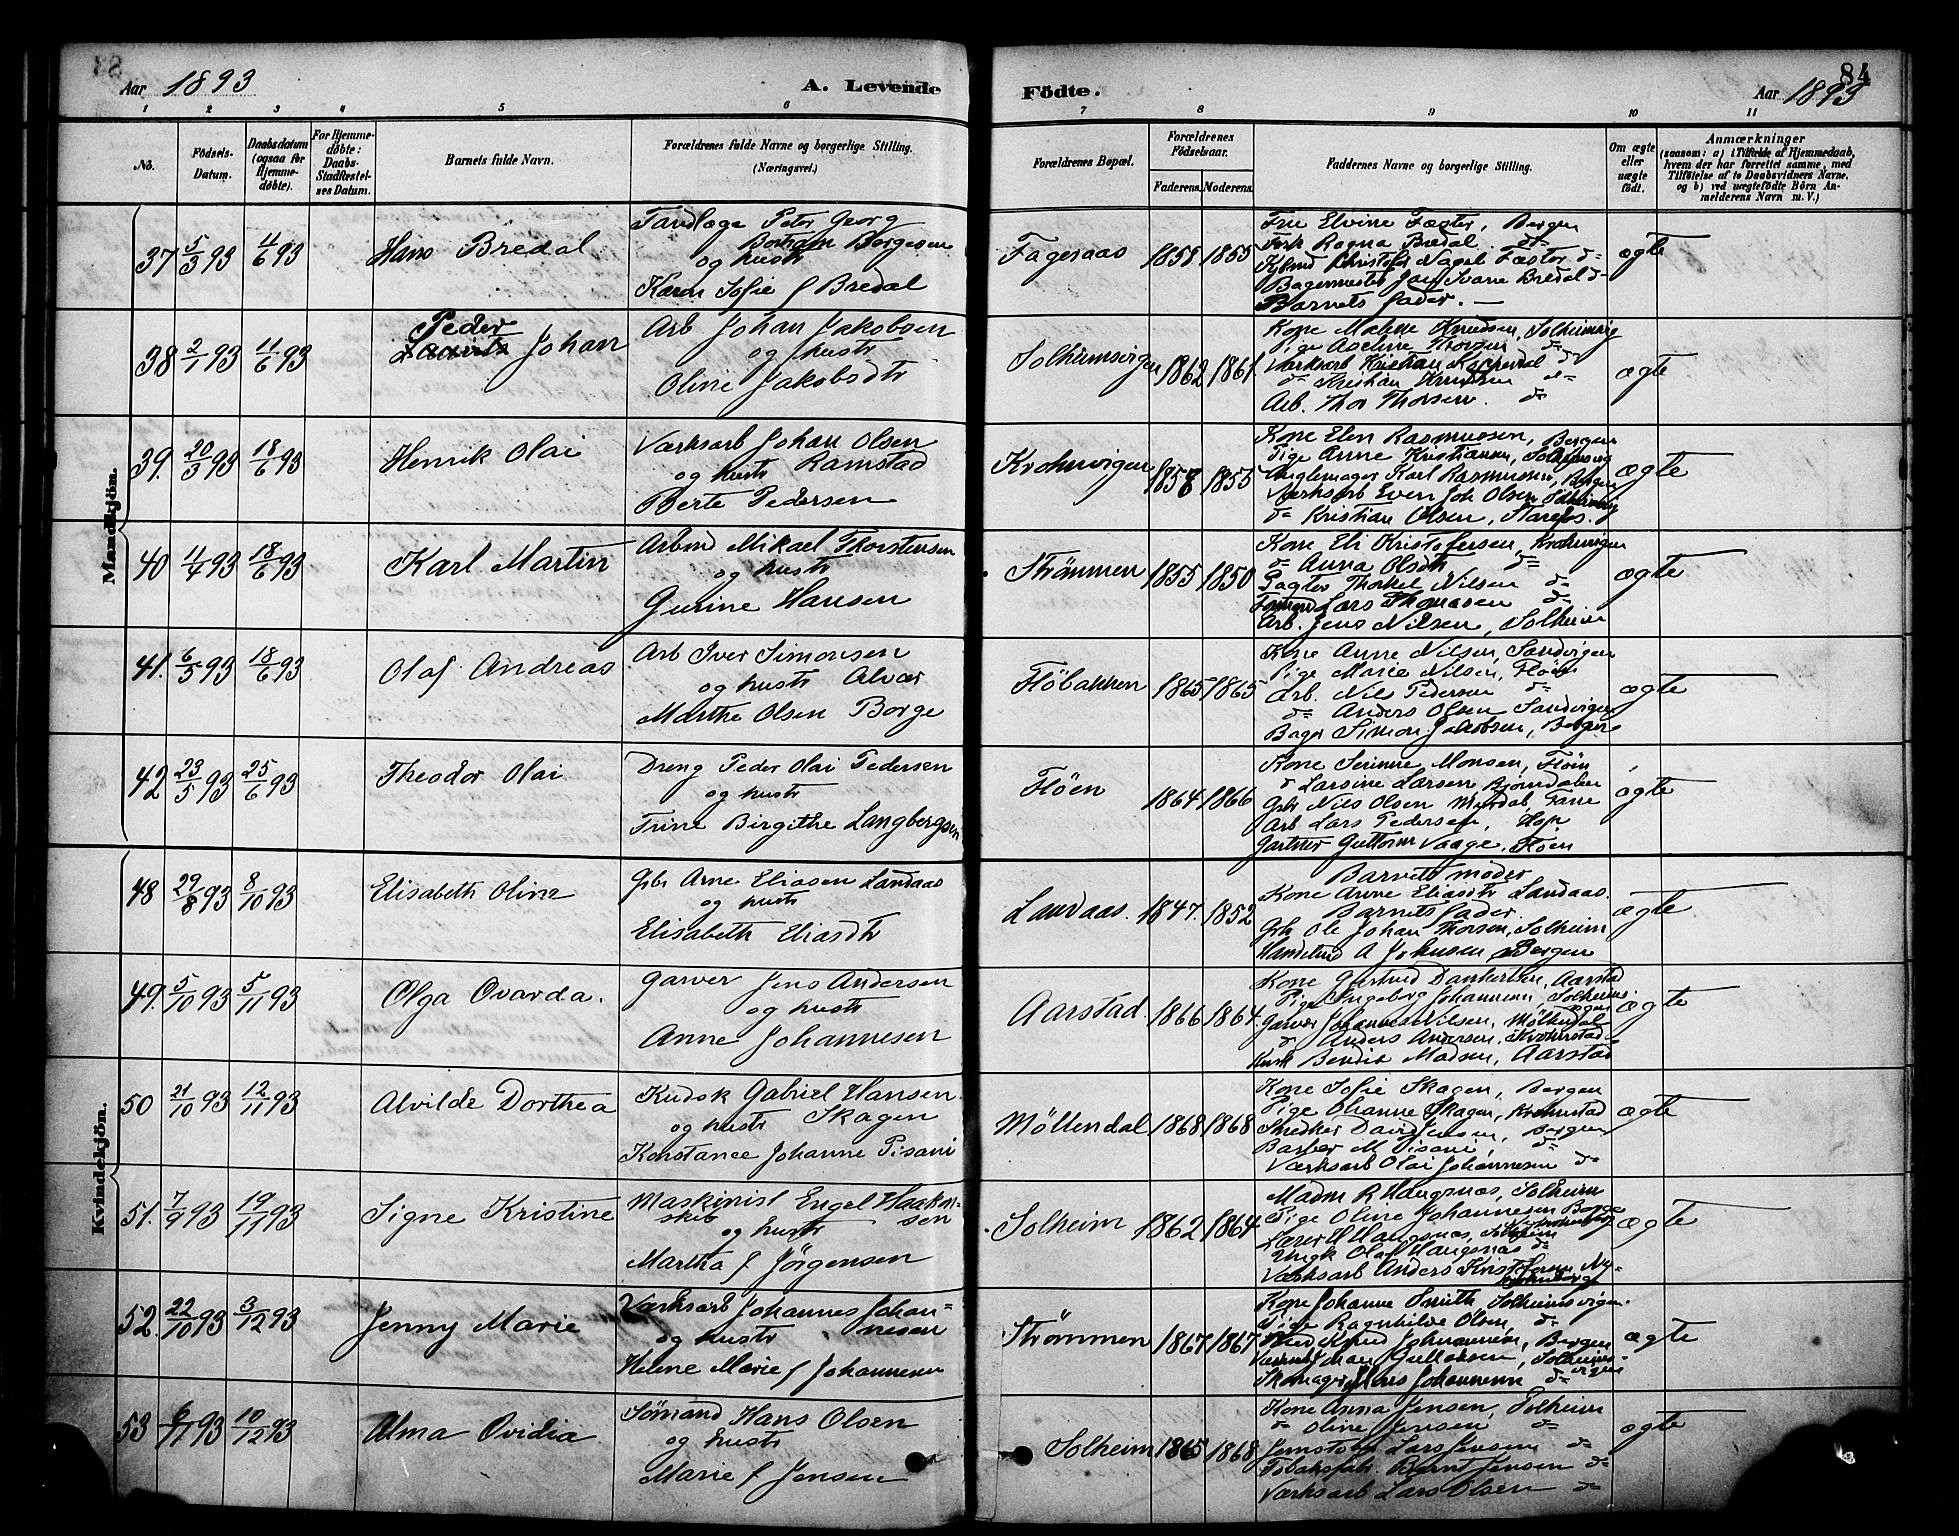 Aar 1893
A. Levende
Födte.
84
Aar 1893
1 2 3 4 5 6 7 8 9 10 11
No.
Födsels-
Datum.
Daabsdatum
(ogsaa for
Hjemme-
döbte).
For Hjemme-
döbte:
Daabs-
Stadfæstel-
ses Datum.
Barnets fulde Navn.
Forældrenes fulde Navne og borgerlige Stilling.
(Næringsvei.)
Forældrenes Bopæl.
Forældrenes
Födselsaar.
Faderens. Moderens.
Faddernes Navne og borgerlige Stilling.
Om ægte
eller
uægte
födt.
Anmærkninger
(saasom: a) i Tilfælde af Hjemmedaab,
hvem der har forrettet samme, med
Tilföielse af to Daabsvidners Navne,
og b) ved uægtefödte Börn An-
melderens Navn m. V.)
Mandkjön.
37 5/3 93 4/6 93 Hans Bredal
Tandlæge Peter Georg
Borgesen
og hustr
Karen Sofie f Bredal
Fageraas 1858 1855
Fru Elvine Faster, Bergen
Frk Ragna Bredal do
Christofer Nagel Faster do
Bagermester Jan Svane Bredal do
Barnets fader. —
ægte
38 2/1 93 11/6 93 Peder
Johan
Arb Johan Jakobsen
og hustr
Oline Jakobsdtr
Solheimsvigen 1862 1861
Kone Malene Knudsen, Solheimsvig
Pige Aseline Thorsen do
Værksarb Kristian do
do Kristian Knudsen do
Arb. Thor Thorsen. do
ægte
39. 20/3 93 18/6 93 Henrik Olai
Værksarb Johan Olsen
og hustr Ramstad
Berte Pedersen
Krohnvigen 1858 1855
Kone Elen Rasmussen, Bergen
Pige Anne Kristiansen, Solheimsvig
Karl Rasmussen, Bergen
Værksarb Even Joh Olsen Solheimsvig
do Kristian Olsen, Starefos.
ægte
40 11/4 93 18/6 93 Karl Martin
Arbmd Mikael Thorstensen
og hustr
Gurine Hansen
Strömmen 1855 1850
Kone Eli Kristofersen, Krohnvigen
do Anna Olsdtr do
Pagter Thorkel Nilsen do
Formand Lars Thomasen do
Arb. Jens Nilsen, Solheim
ægte
41. 6/5 93 18/6 93 Olaf Andreas
Arb Iver Simonsen
og hustr Alvær
Marthe Olsen Borge
Flöbakken 1865 1865
Kone Anne Nilsen, Sandvigen
Pige Marie Nilsen, Flöen
Arb. Nils Pedersen do
do Anders Olsen Sandvigen
Bager Simon Jakobsen, Bergen
ægte
42 23/5 93 25/6 93 Theodor Olai
Dreng Peder Olai Pedersen
og hustr
Trine Birgithe Langbergsen
Flöen 1864 1866
Kone Serine Monsen, Flöen
do Larsine Larsen Bjørndalen
Gbr Nils Olsen Myrdal, Fane
Arb Lars Pedersen, Hop
Gartner Guttorm Vaage, Flöen
ægte
Kvindekjön.
48 29/8 93 8/10 93 Elisabeth Oline
Gbr Arne Eliasen Landaas
og hustr
Elisabeth Eliasdtr
Landaas. 1847. 1852
Barnets moder
Kone Anne Eliasdtr Landaas.
Barnets fader.
Gbr Ole Johan Thorsen, Solheim
A Johnsen, Bergen
ægte
49. 5/10 93 5/11 93 Olga Ovarda.
Garver Jens Andersen
og hustr
Anne Johannesen
Aarstad. 1866 1864.
Kone Gurtrud Dankertsen, Aarstad
Pige Ingeborg Johannesen, Solheims-
vigen
Garver Johannes Nilsen, Möllendal
do Anders Andersen, Kronstad
Kusk Bendix Madsen, Aarstad
ægte
50 21/10 93 12/11 93 Alvilde Dorthea
Kudsk Gabriel Hansen
og hustr Skagen
Konstance Johanne Pisani
Möllendal 1868. 1868
Kone Sofie Skagen, Bergen
Pige Ohanne Skagen, Kronstad
Snedker David Jensen, Bergen
Barber M Pisani, do
Værksarb Olai Johannesen do
ægte
51. 7/9 93 19/11 93 Signe Kristine
Maskinist Engel Haakon-
skib sen
og hustr
Martha f Jörgensen
Solheim 1862 1864
Madm R Haugsnæs, Solheim
Pige Oline Johannesen Borge
Lærer H Haugsnæs, Solheim
Ungk Olaf Haugsnæs do
Værksarb Anders Kristofersen Ny-
krohnborg
ægte
52. 22/10 93 3/12 93 Jenny Marie
Værksarb Johannes Johan-
og hustr nesen
Helene Marie f Johannesen
Strömmen 1867 1867
Kone Johanne Smith, Solheimsvigen.
Pige Ragnhilde Olsen, do
Knud Johannesen, Bergen
Gullaksen, Solheims-
vigen
Skomager Mons Johannesen do
ægte
53 6/11 93 10/12 93 Alma Ovidia
Sömand Hans Olsen
og hustr
Marie f Jensen
Solheim 1865 1868
Kone Anna Jensen, Solheim
do Oline Jensen do
Jernstöber Lars Jensen do
Tobaksfabr. Bernt Jensen do
Værksarb Lars Olsen do
ægte